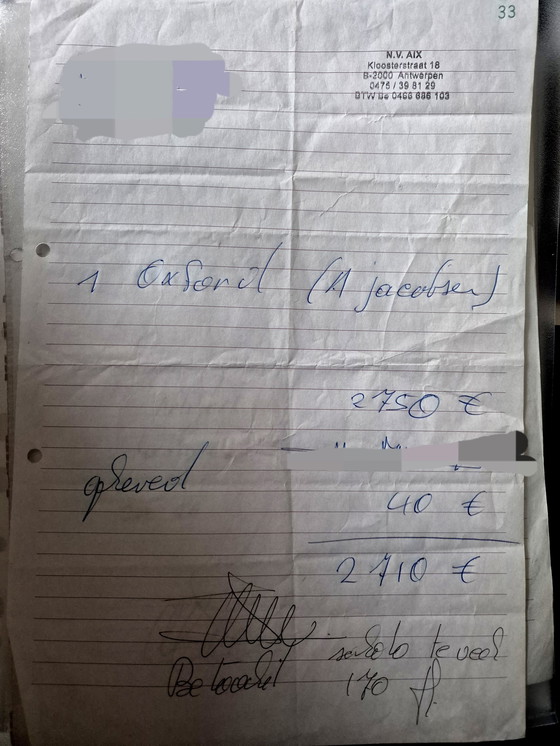 33
N.V. AIX
Kloosterstraat 18
B-2000 Antwerpen
0475 / 39 81 29
BTW Be 0466 686 103
1 Oxford (A jacobsen)
2750 €
40 €
2710 €
saldo te veel
Betaald 170 fl.